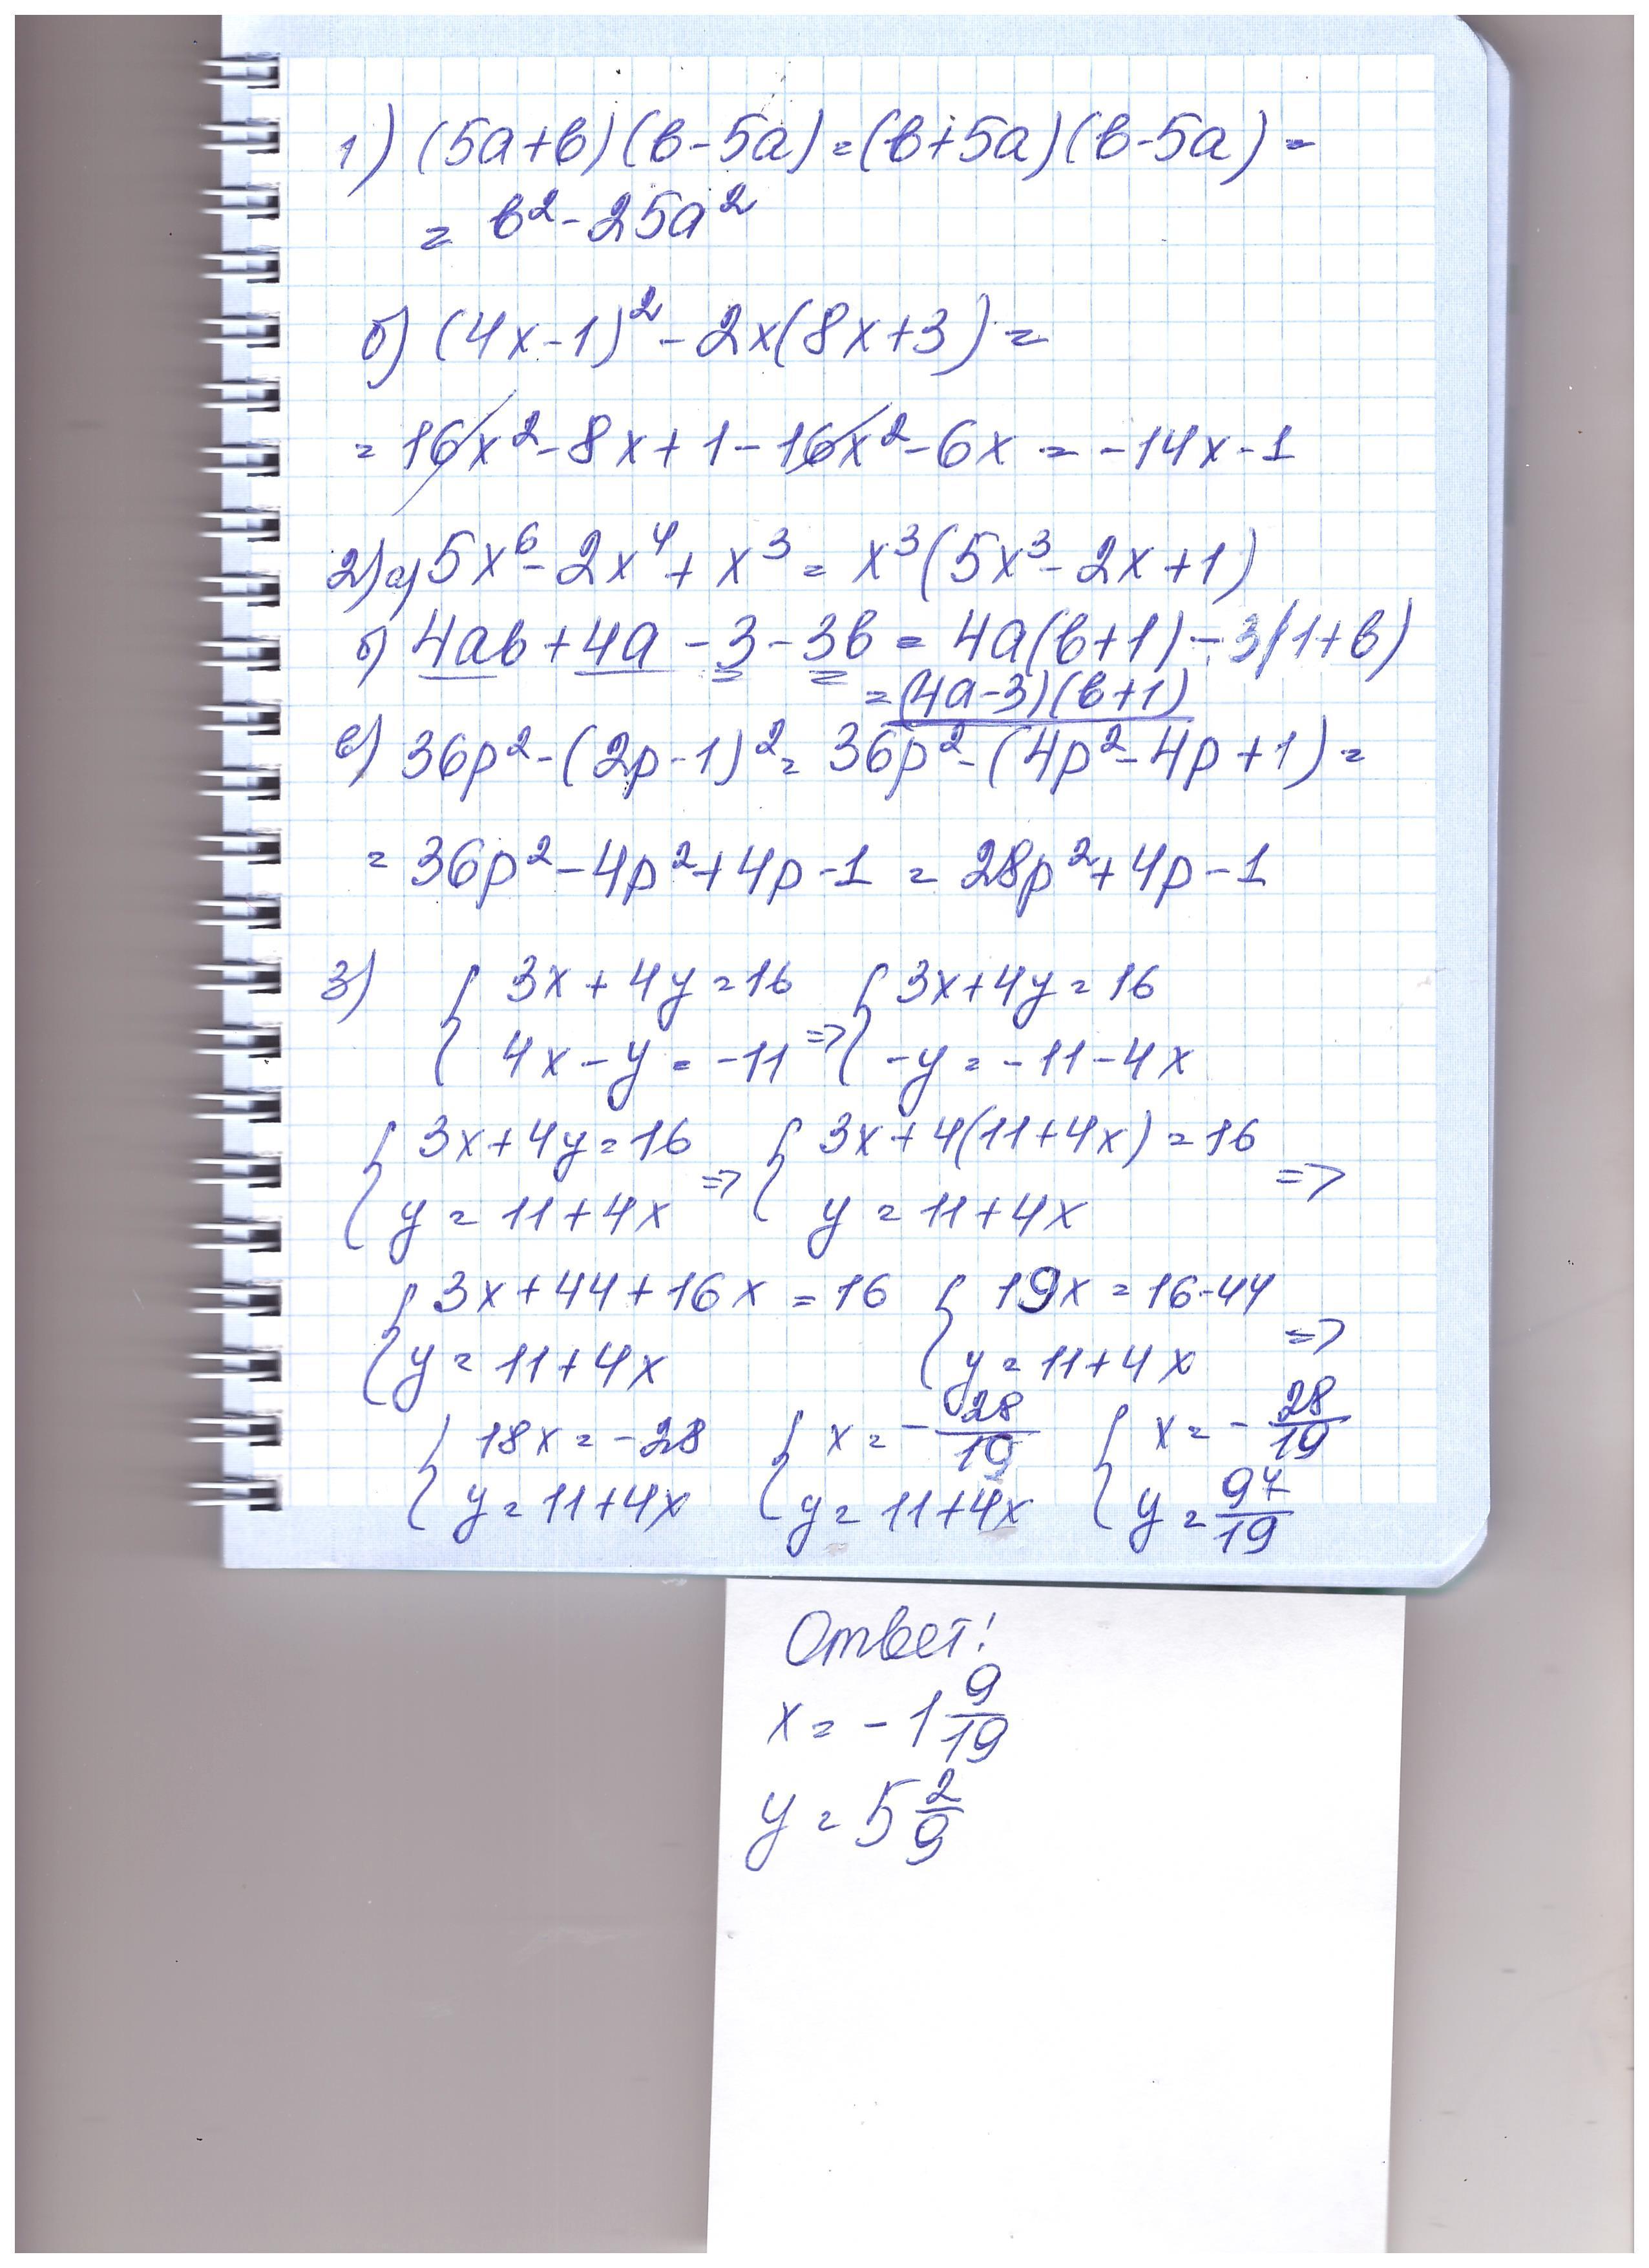 1) (5a+b)(b-5a)=(b+5a)(b-5a)=
= b²-25a²
б) (4x-1)²-2x(8x+3)=
= 16x²-8x+1-16x²-6x = -14x-1
2) а) 5x⁶-2x⁴+x³ = x³(5x³-2x+1)
б) 4ab+4a-3-3b = 4a(b+1)-3(1+b)
=(4a-3)(b+1)
в) 36p²-(2p-1)²= 36p²-(4p²-4p+1)=
= 36p²-4p²+4p-1 = 28p²+4p-1
3) { 3x+4y=16 { 3x+4y=16
4x-y=-11 => -y=-11-4x
{ 3x+4y=16 => { 3x+4(11+4x)=16 =>
y=11+4x y=11+4x
{ 3x+44+16x=16 { 19x=16-44 =>
y=11+4x y=11+4x
{ 18x=-28 { x=-28/19 { x=-28/19
y=11+4x y=11+4x y=97/19
Ответ!
x=-1 9/19
y=5 2/9